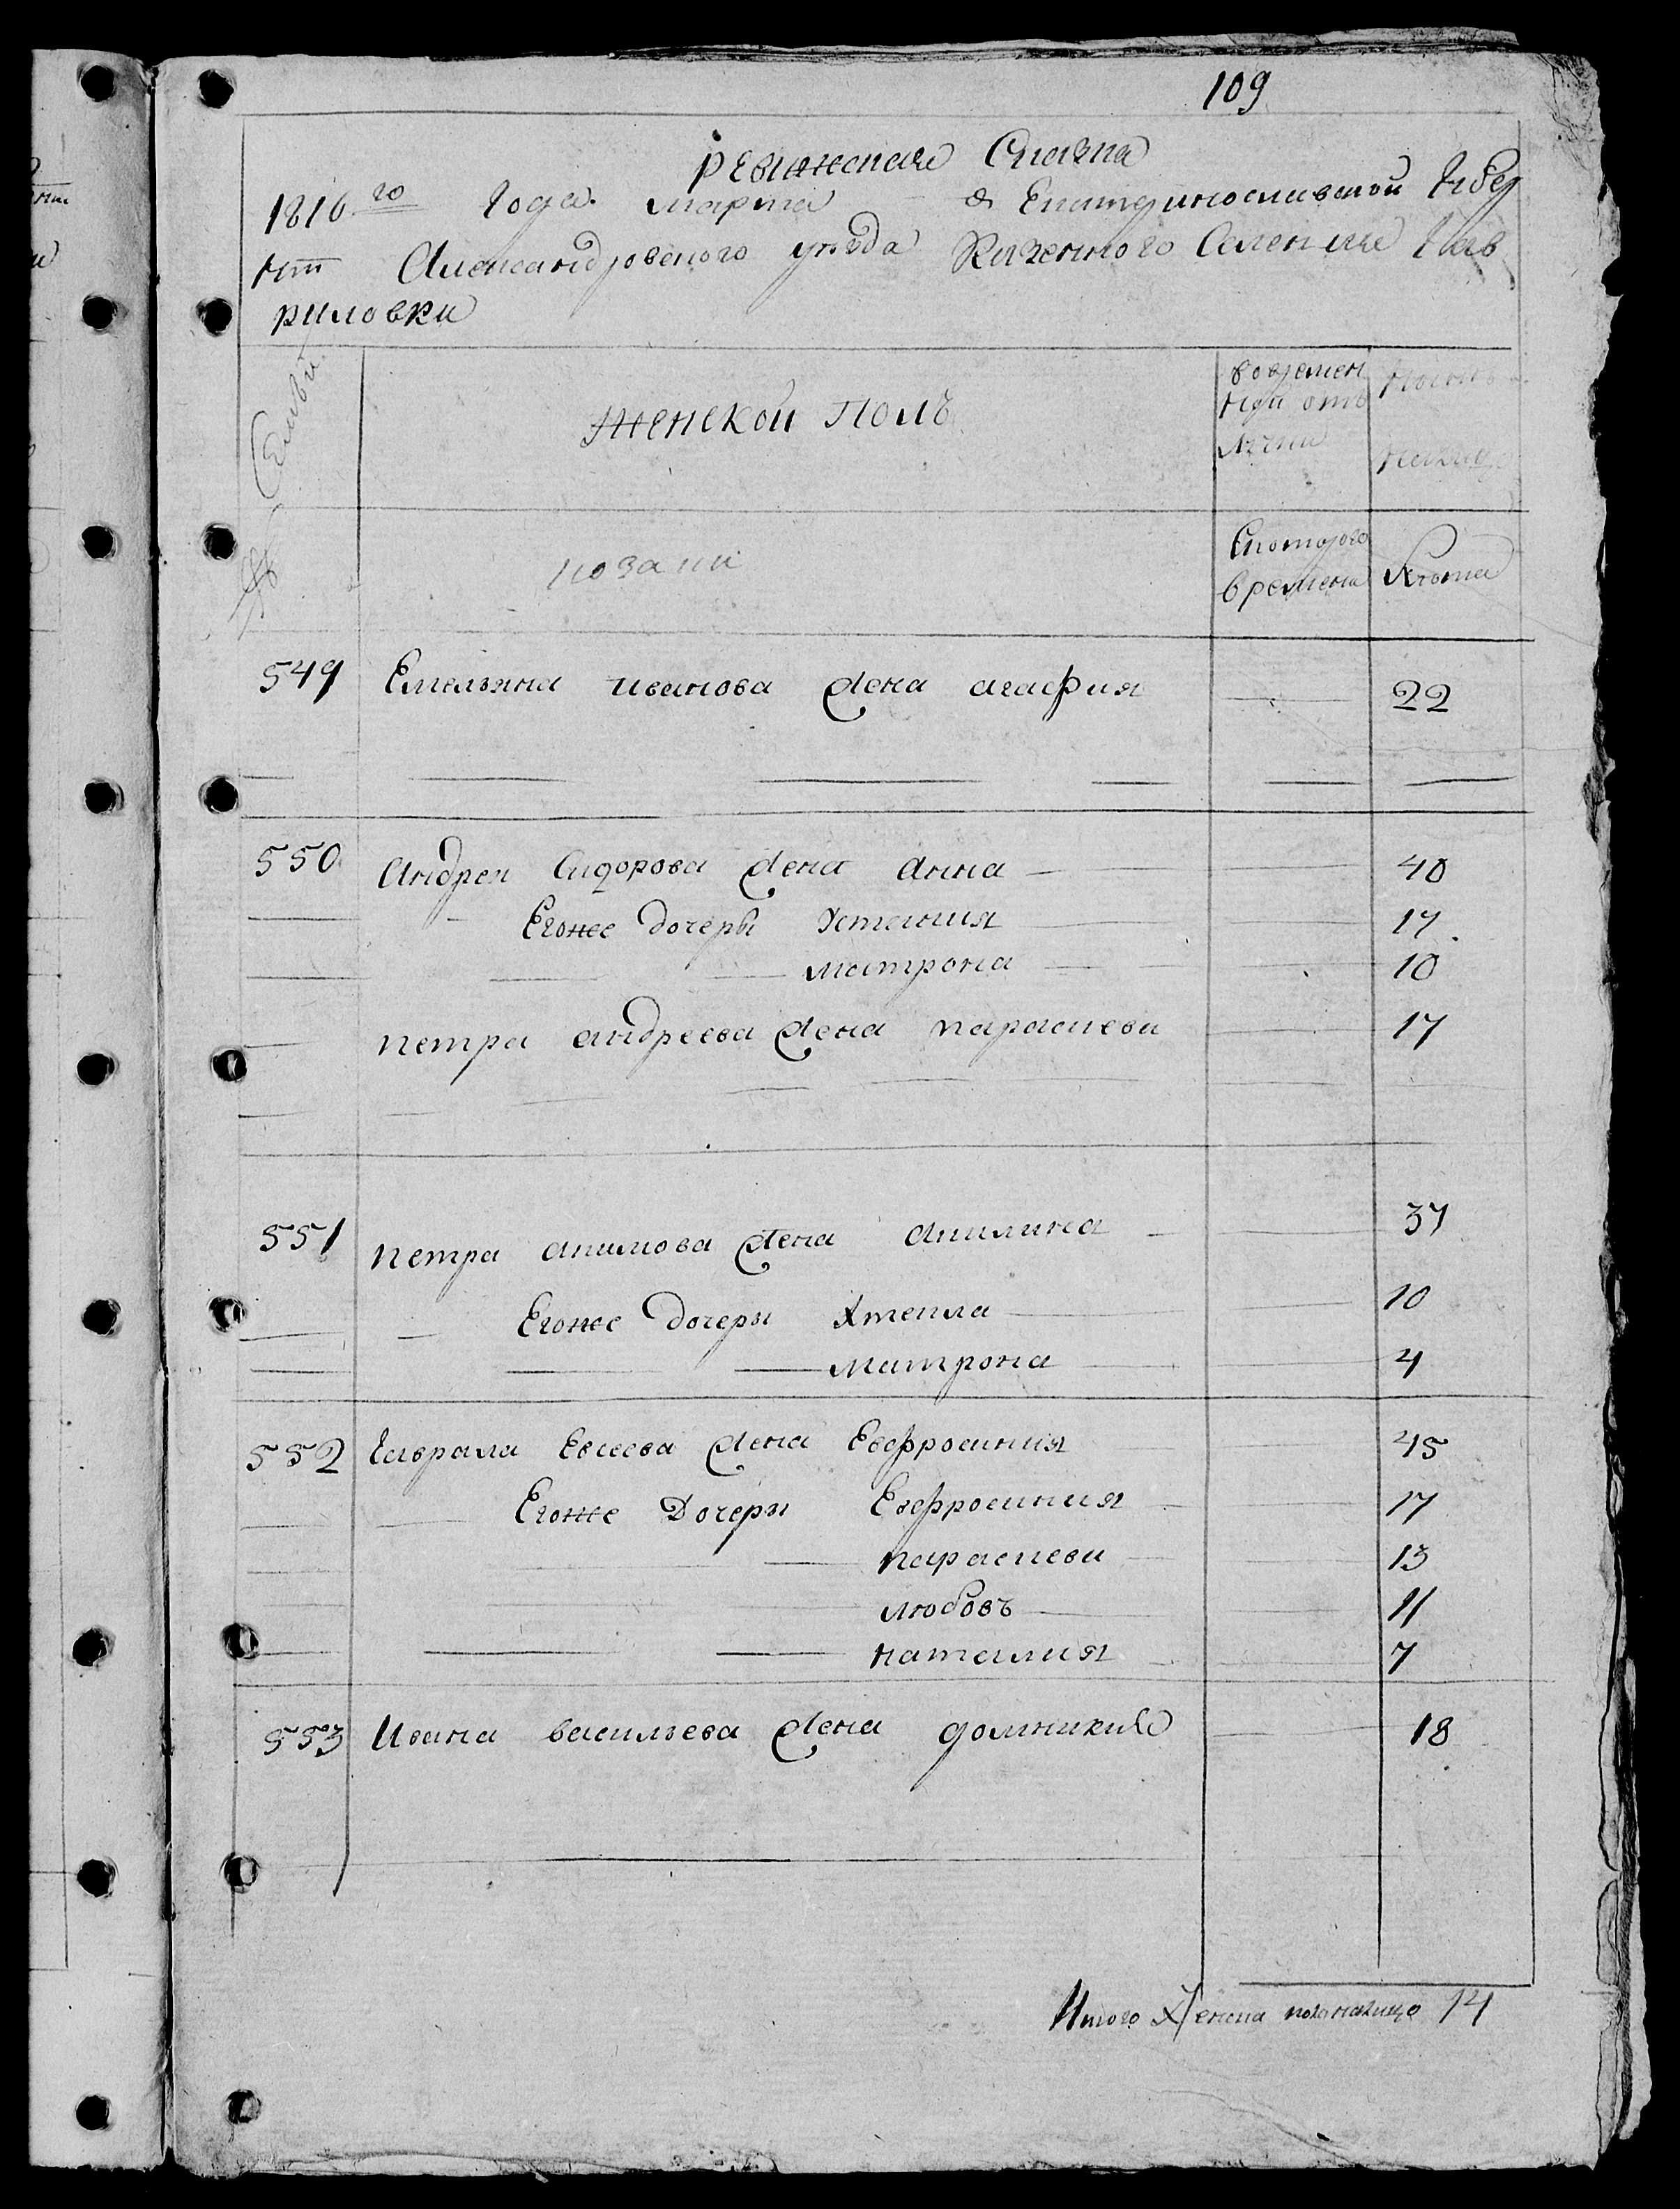 109
Ревижская Скаска
1816го Года Марта Екатеринославской Губер
нии Александровского уезда Казенного Селения Гав
риловки
Семьи
Женской Полъ
вовремен
ной отъ
лучки
Ныне
казаки
Скоторого
времени
Лета
549 Емельяна иванова жена агафия 22
550 Андрея Сидорова жена анна 40
Егоже дочеры Устиния 17
матрона 10
петра андреева жена параскева 17
551 петра акимова жена Акилина 37
Егоже дочеры Текла 10
матрона 4
552 Гаврила Евсеева жена Евфросиния 45
Егоже Дочеры Евфросиния 17
параскева 13
любовъ 11
наталия 7
553 Ивана васильева жена домникия 18
Итого Женска пола налицо 14